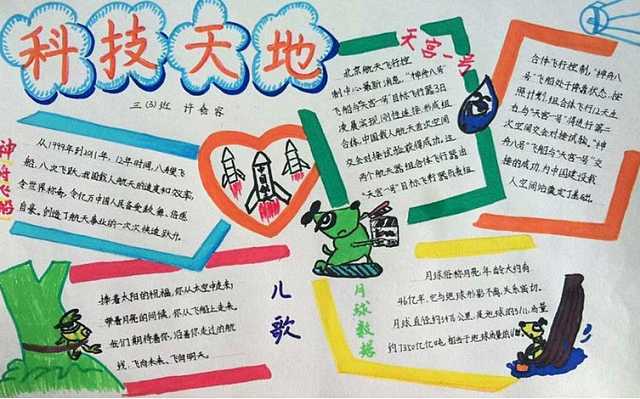 科技天地
三(3)班 许睿容
神舟飞船
从1999年到2011年,12年时间,八艘飞
船,八次飞跃,我国载人航天的速度和效率,
令世界称奇,令亿万中国人民备受鼓舞、倍感
自豪。创造了航天事业的一次次快速跃升。
中国航天
天宫一号
北京航天飞行控
制中心最新消息,“神舟八号”
飞船与“天宫一号”目标飞行器3日
凌晨实现刚性连接,形成组
合体,中国载人航天首次空间
交会对接试验获得成功。这
两个航天器组合体飞行器由
“天宫一号”目标飞行器负责组
合体飞行控制,“神舟八
号”飞船处于停靠状态。按
照计划,组合体飞行12天左
右与“天宫一号”将进行第二
次空间交会对接试验。“神
舟八号”飞船与“天宫一号”交
接的成功,为中国建设载
人空间站奠定了基础。
儿歌
捧着太阳的祝福,你从太空中走来;
带着月亮的问候,你从飞船上走来。
我们期待着你,沿着你走过的航
线:飞向未来、飞向明天。
月球数据
月球俗称月亮,年龄大约有
46亿年,它与地球形影不离,关系密切。
月球直径约3476公里,是地球的3/11,质量
约7350亿亿吨,相当于地球质量的1/81